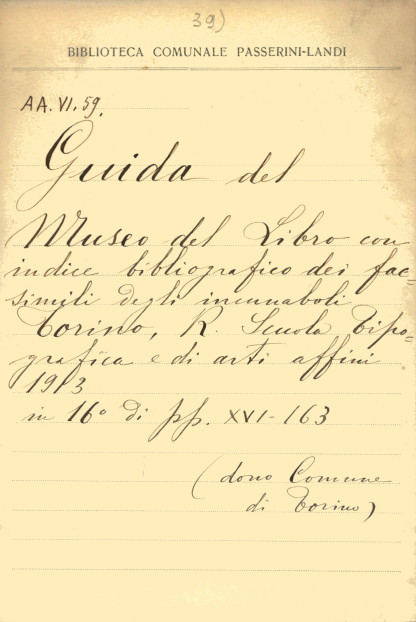 39)
BIBLIOTECA COMUNALE PASSERINI-LANDI
AA.VI.59.
Guida del
Museo del Libro con
indice bibliografico dei fac=
simili degli incunaboli
Torino, R. Scuola Tipo=
grafica e di arti affini
1913
in 16° di pp. XVI-163
(dono Comune
di Torino)